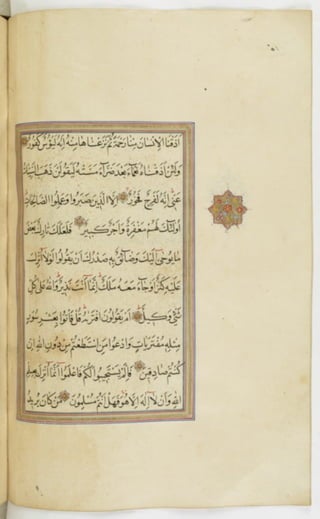 اَذَقْنَا الْاِنْسَانَ مِنَّا رَحْمَةً ثُمَّ نَزَعْنَاهَا مِنْهُ اِنَّهُ لَيَؤُسٌ كَفُورٌ
وَلَئِنْ اَذَقْنَاهُ نَعْمَاءَ بَعْدَ ضَرَّاءَ مَسَّتْهُ لَيَقُولَنَّ ذَهَبَ السَّيِّئَاتُ
عَنِّى اِنَّهُ لَفَرِحٌ فَخُورٌ اِلَّا الَّذِينَ صَبَرُوا وَعَمِلُوا الصَّالِحَاتِ
اُولٰئِكَ لَهُمْ مَغْفِرَةٌ وَاَجْرٌ كَبِيرٌ فَلَعَلَّكَ تَارِكٌ بَعْضَ
مَا يُوحٰى اِلَيْكَ وَضَائِقٌ بِهِ صَدْرُكَ اَنْ يَقُولُوا لَوْلَا اُنْزِلَ
عَلَيْهِ كَنْزٌ اَوْ جَاءَ مَعَهُ مَلَكٌ اِنَّمَا اَنْتَ نَذِيرٌ وَاللّٰهُ عَلٰى كُلِّ
شَىْءٍ وَكِيلٌ اَمْ يَقُولُونَ افْتَرٰيهُ قُلْ فَاْتُوا بِعَشْرِ سُوَرٍ
مِثْلِهِ مُفْتَرَيَاتٍ وَادْعُوا مَنِ اسْتَطَعْتُمْ مِنْ دُونِ اللّٰهِ اِنْ
كُنْتُمْ صَادِقِينَ فَاِلَّمْ يَسْتَجِيبُوا لَكُمْ فَاعْلَمُوا اَنَّمَا اُنْزِلَ بِعِلْمِ
اللّٰهِ وَاَنْ لَا اِلٰهَ اِلَّا هُوَ فَهَلْ اَنْتُمْ مُسْلِمُونَ مَنْ كَانَ يُرِيدُ